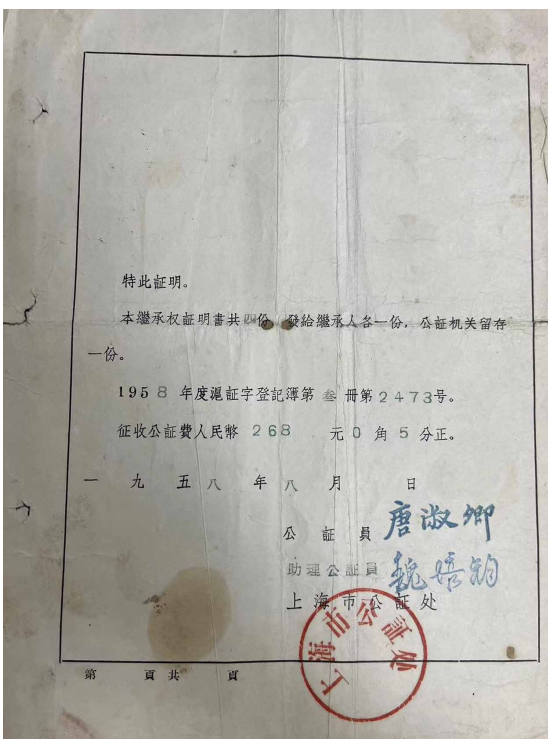 特此証明。
本繼承权証明書共四份，發給繼承人各一份，公証机关留存
一份。
1958年度滬証字登記簿第叁冊第2473号。
征收公証費人民幣268元0角5分正。
一九五八年八月 日
公証員 唐淑卿
助理公証員
上海市公証处
上海市公証处
第 頁共 頁